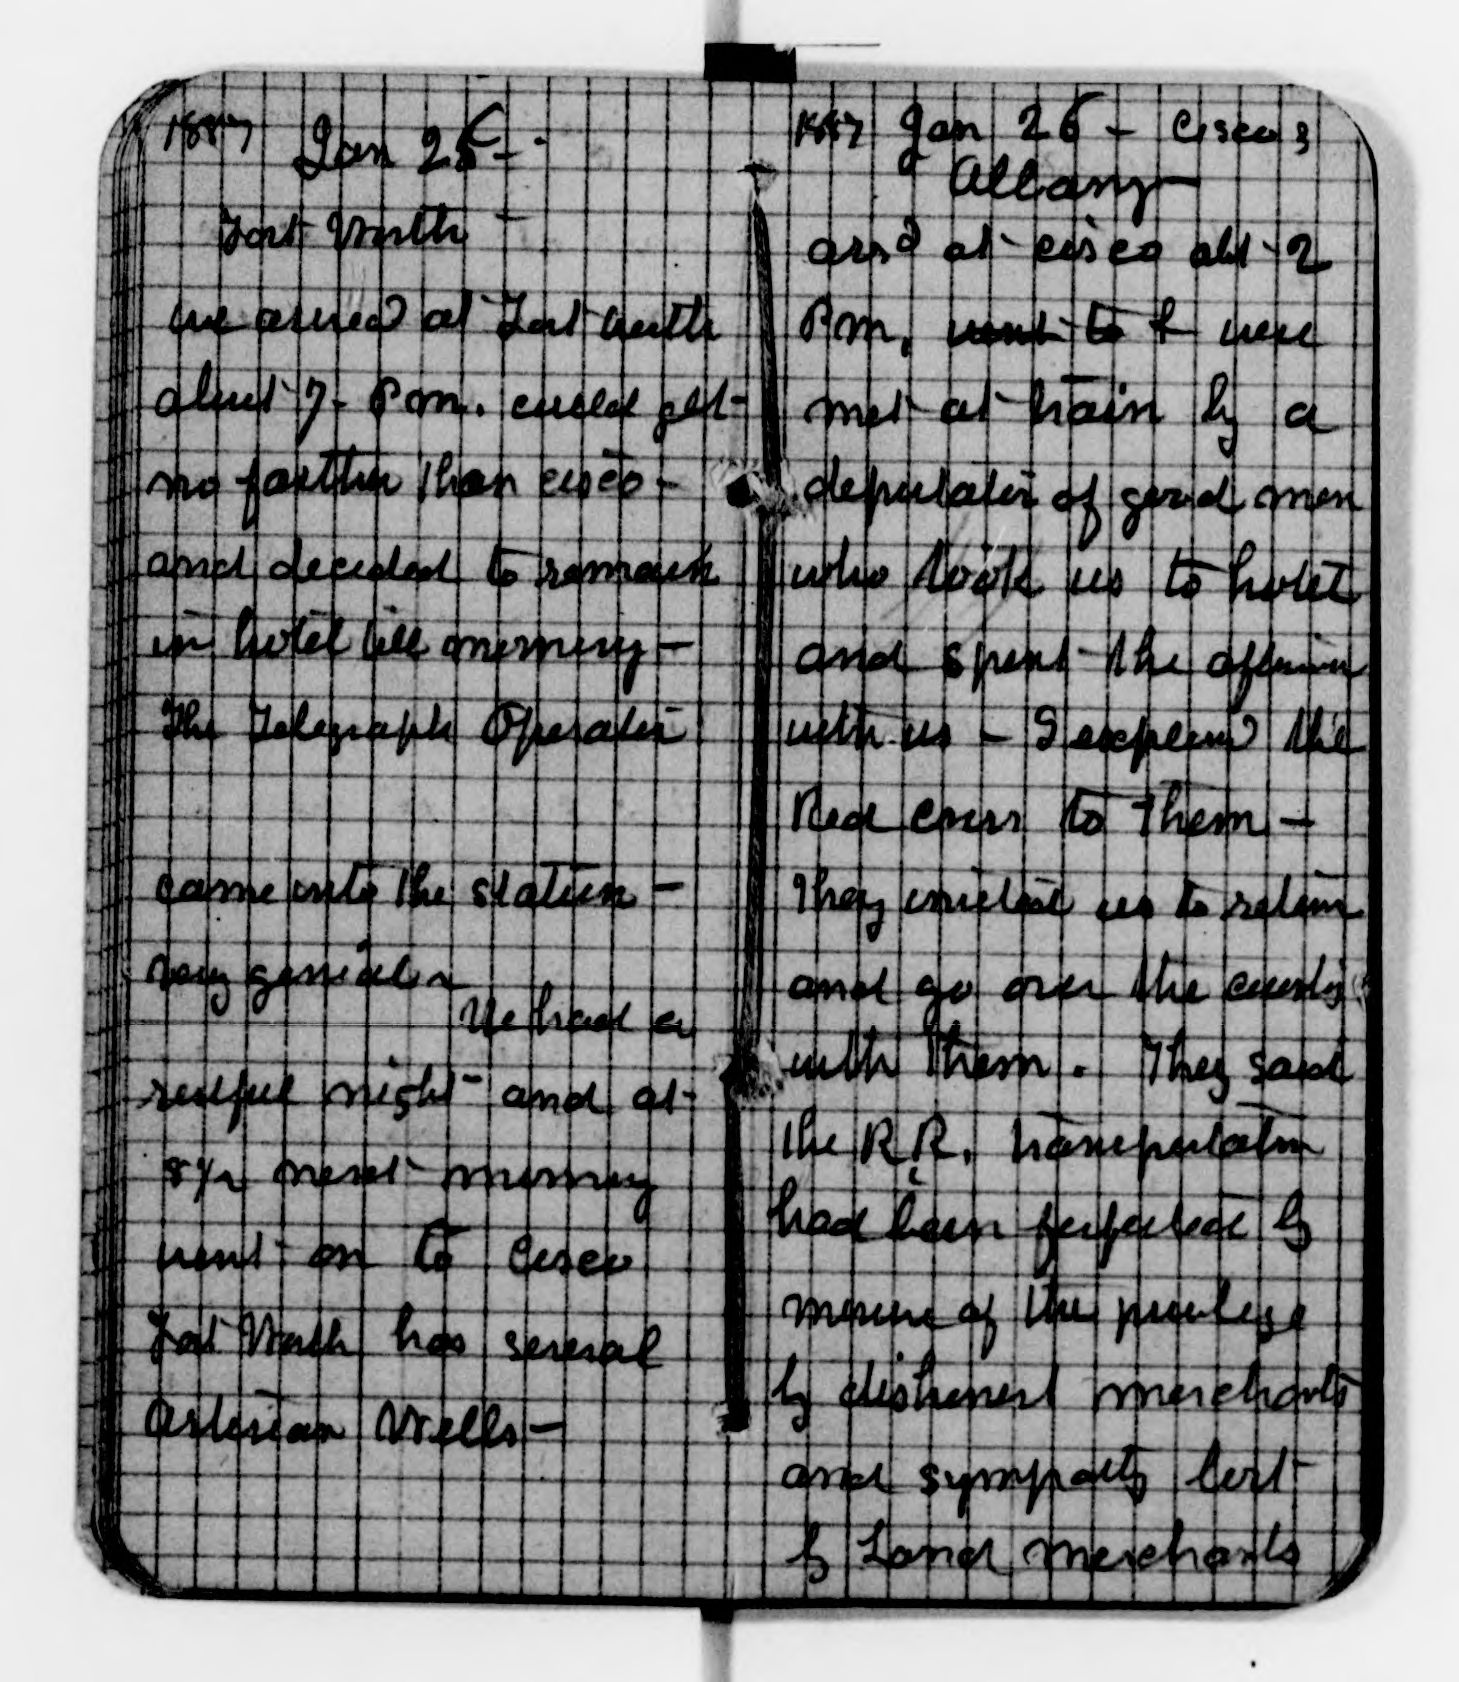 1887 Jan 25 -
Fort Worth -
we arrived at Fort Worth
about 7- P.m. could get
no farther than Cisco -
and decided to remain
in hotel till morning -
The Telegraph Operator
came into the station -
very genial -
We had a
restful night - and at
8 1/2 next morning
went on to Cisco
Fort Worth has several
Artesian Wells -
1887 Jan 26 - Cisco &
Albany -
arrd at Cisco abt 2
P.m. went to & were
met at train by a
deputation of good men
who took us to hotel
and spent the afternoon
with us - I explained the
Red Cross to them -
They invited us to return
and go over the country
with them. They said
the R.R. transportation
had been forfeited by
misuse of the privilege
by dishonest merchants
and sympathy lost
by Land Merchants